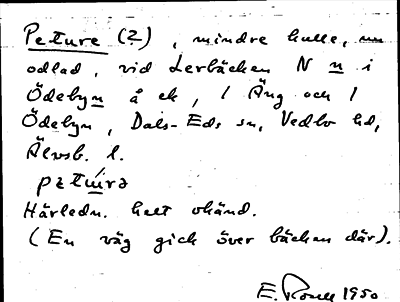 Peture (?), mindre kulle, nu
odlad, vid Lerbäcken N n i
Ödebyn å ek, 1 Äng och 1
Ödebyn, Dals-Eds sn, Vedbo hd,
Älvsb. l.
Härledn. helt okänd.
(En väg gick över bäcken där).
E. 1950